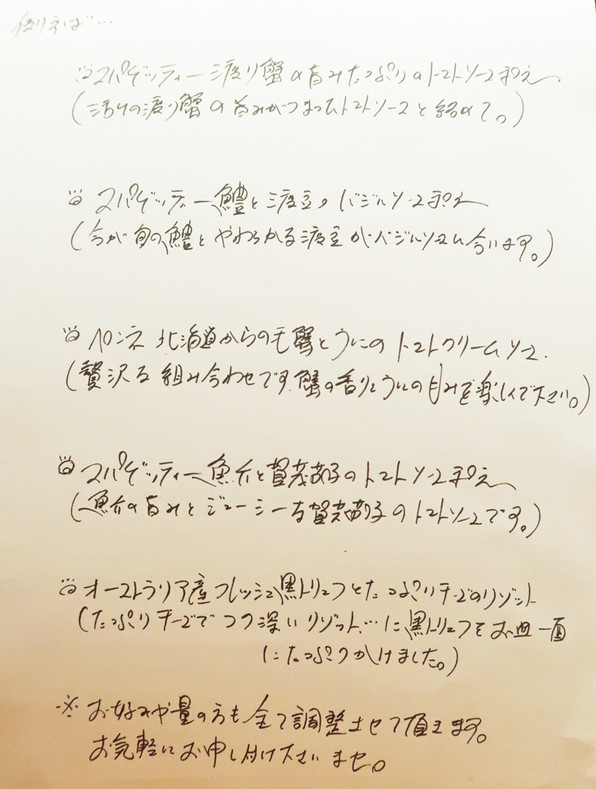 例えば…
スパゲッティー 渡り蟹の旨みたっぷりのトマトソース和え
(活けの渡り蟹の旨みがつまったトマトソースと絡めて。)
スパゲッティー 鱧と渡豆のバジルソース和え
(今が旬の鱧とやわらかな渡豆がバジルソースに合います。)
ペンネ 北海道からの毛蟹とうにのトマトクリームソース
(贅沢な組み合わせです。蟹の香りとうにの甘みを楽しんで下さい。)
スパゲッティー 魚介と賀茂茄子のトマトソース和え
(魚介の旨みとジューシーな賀茂茄子のトマトソースです。)
オーストラリア産フレッシュ黒トリュフとたっぷりチーズのリゾット
(たっぷりチーズでコク深いリゾット…に黒トリュフをお皿一面
にたっぷりかけました。)
※ お好みや量の方も全て調整させて頂きます。
お気軽にお申し付け下さいませ。